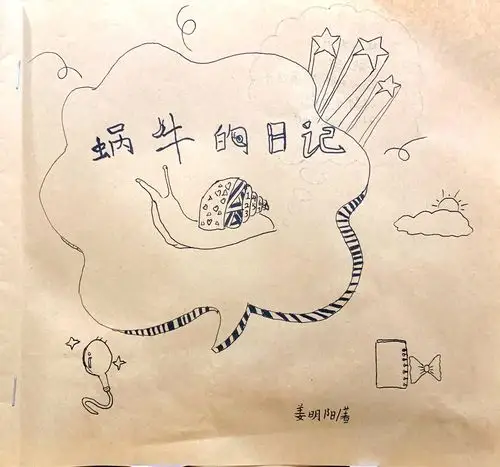 蜗牛的日记
姜明阳/著